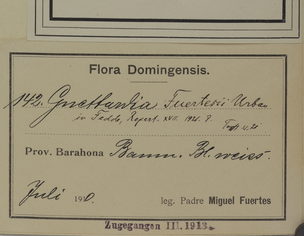 Flora Domingensis.
142. Guettarda Fuertesii Urban
in Fedde, Repert. XVII. 1921. 8.
Prov. Barahona Baum. Bl. weiss.
Juli 1910. leg. Padre Miguel Fuertes
Zugegangen III.1913.